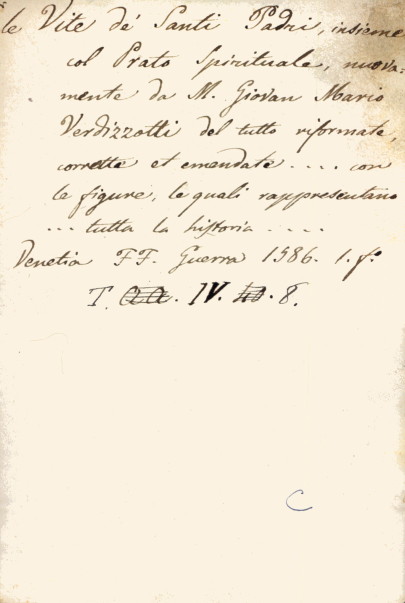 le Vite dé Santi Padri, insieme
col Prato Spirituale, nuova=
mente da M. Giovan Mario
Verdizzotti del tutto riformate,
corrette et emendate .... con
le figure, le quali rappresentano
... tutta la historia ....
Venetia FF. Guerra 1586. 1. fº
T. IV. 8.
C